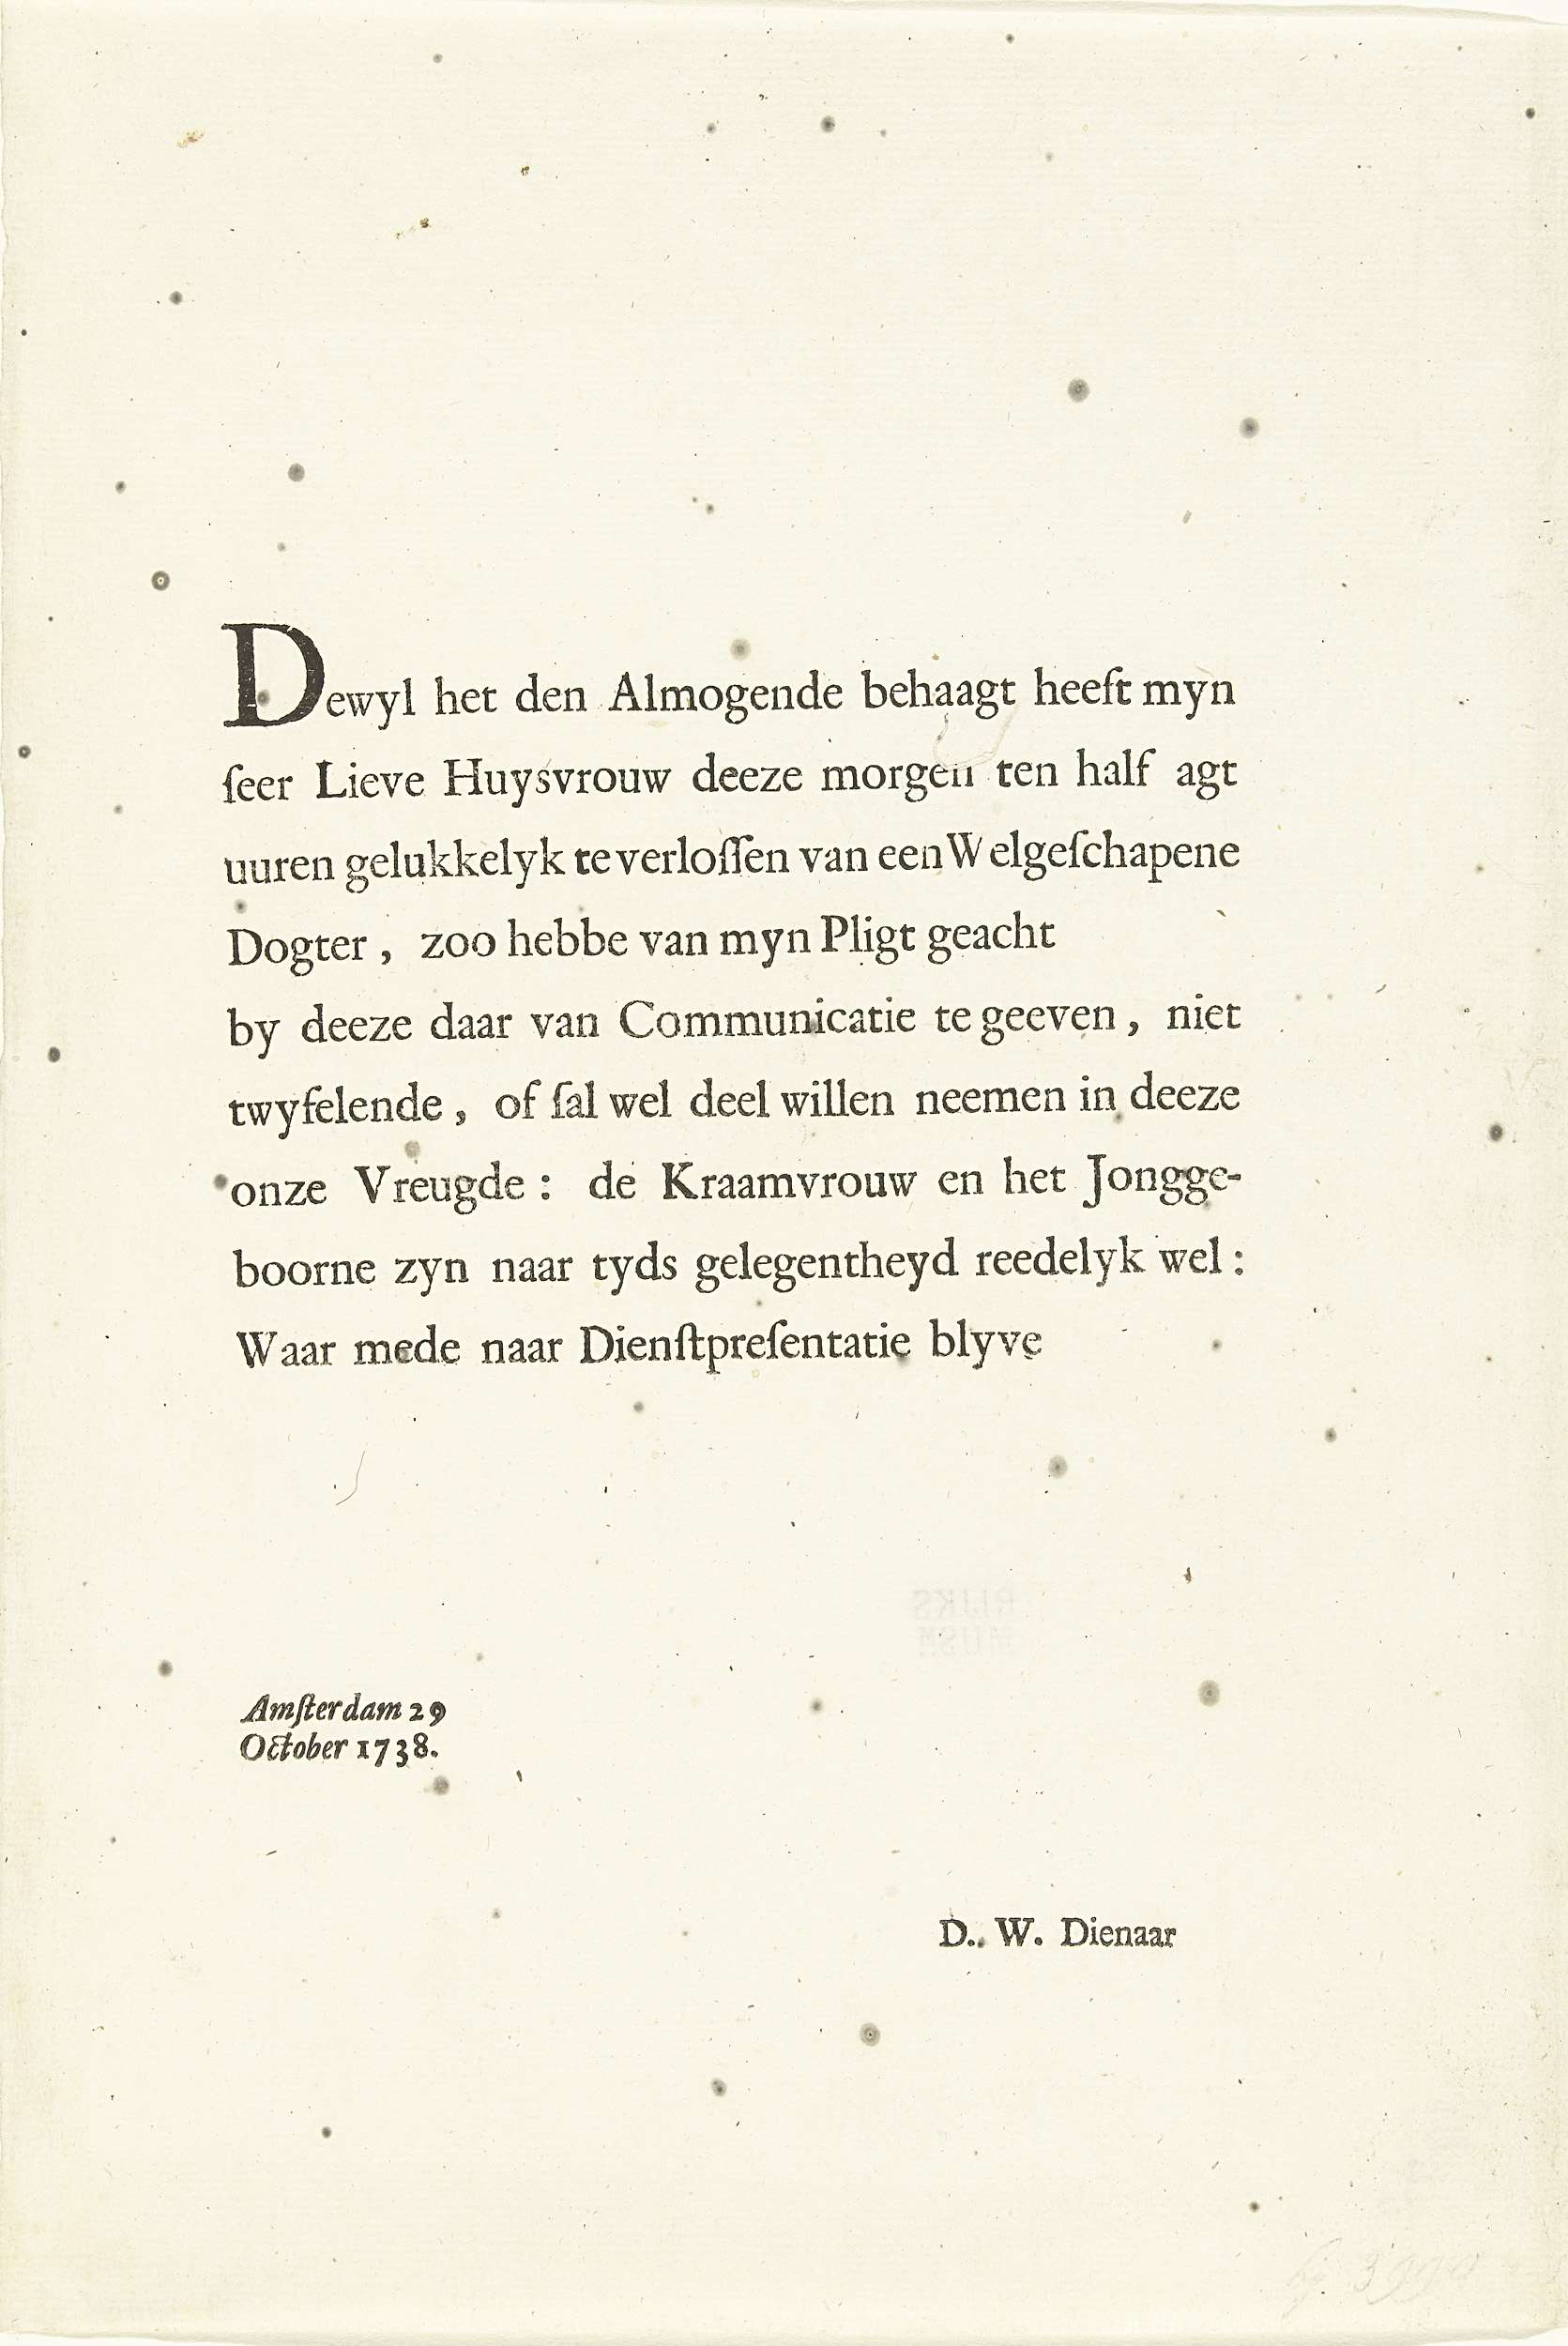 Dewyl het den Almogende behaagt heeft myn
ſeer Lieve Huysvrouw deeze morgen ten half agt
uuren gelukkelyk te verloſſen van een Welgeſchapene
Dogter, zoo hebbe van myn Pligt geacht
by deeze daar van Communicatie te geeven, niet
twyfelende, of ſal wel deel willen neemen in deeze
onze Vreugde: de Kraamvrouw en het Jongge-
boorne zyn naar tyds gelegentheyd reedelyk wel:
Waar mede naar Dienſtpreſentatie blyve
RIJKS
MUSM
Amſterdam 29
October 1738.
D. W. Dienaar